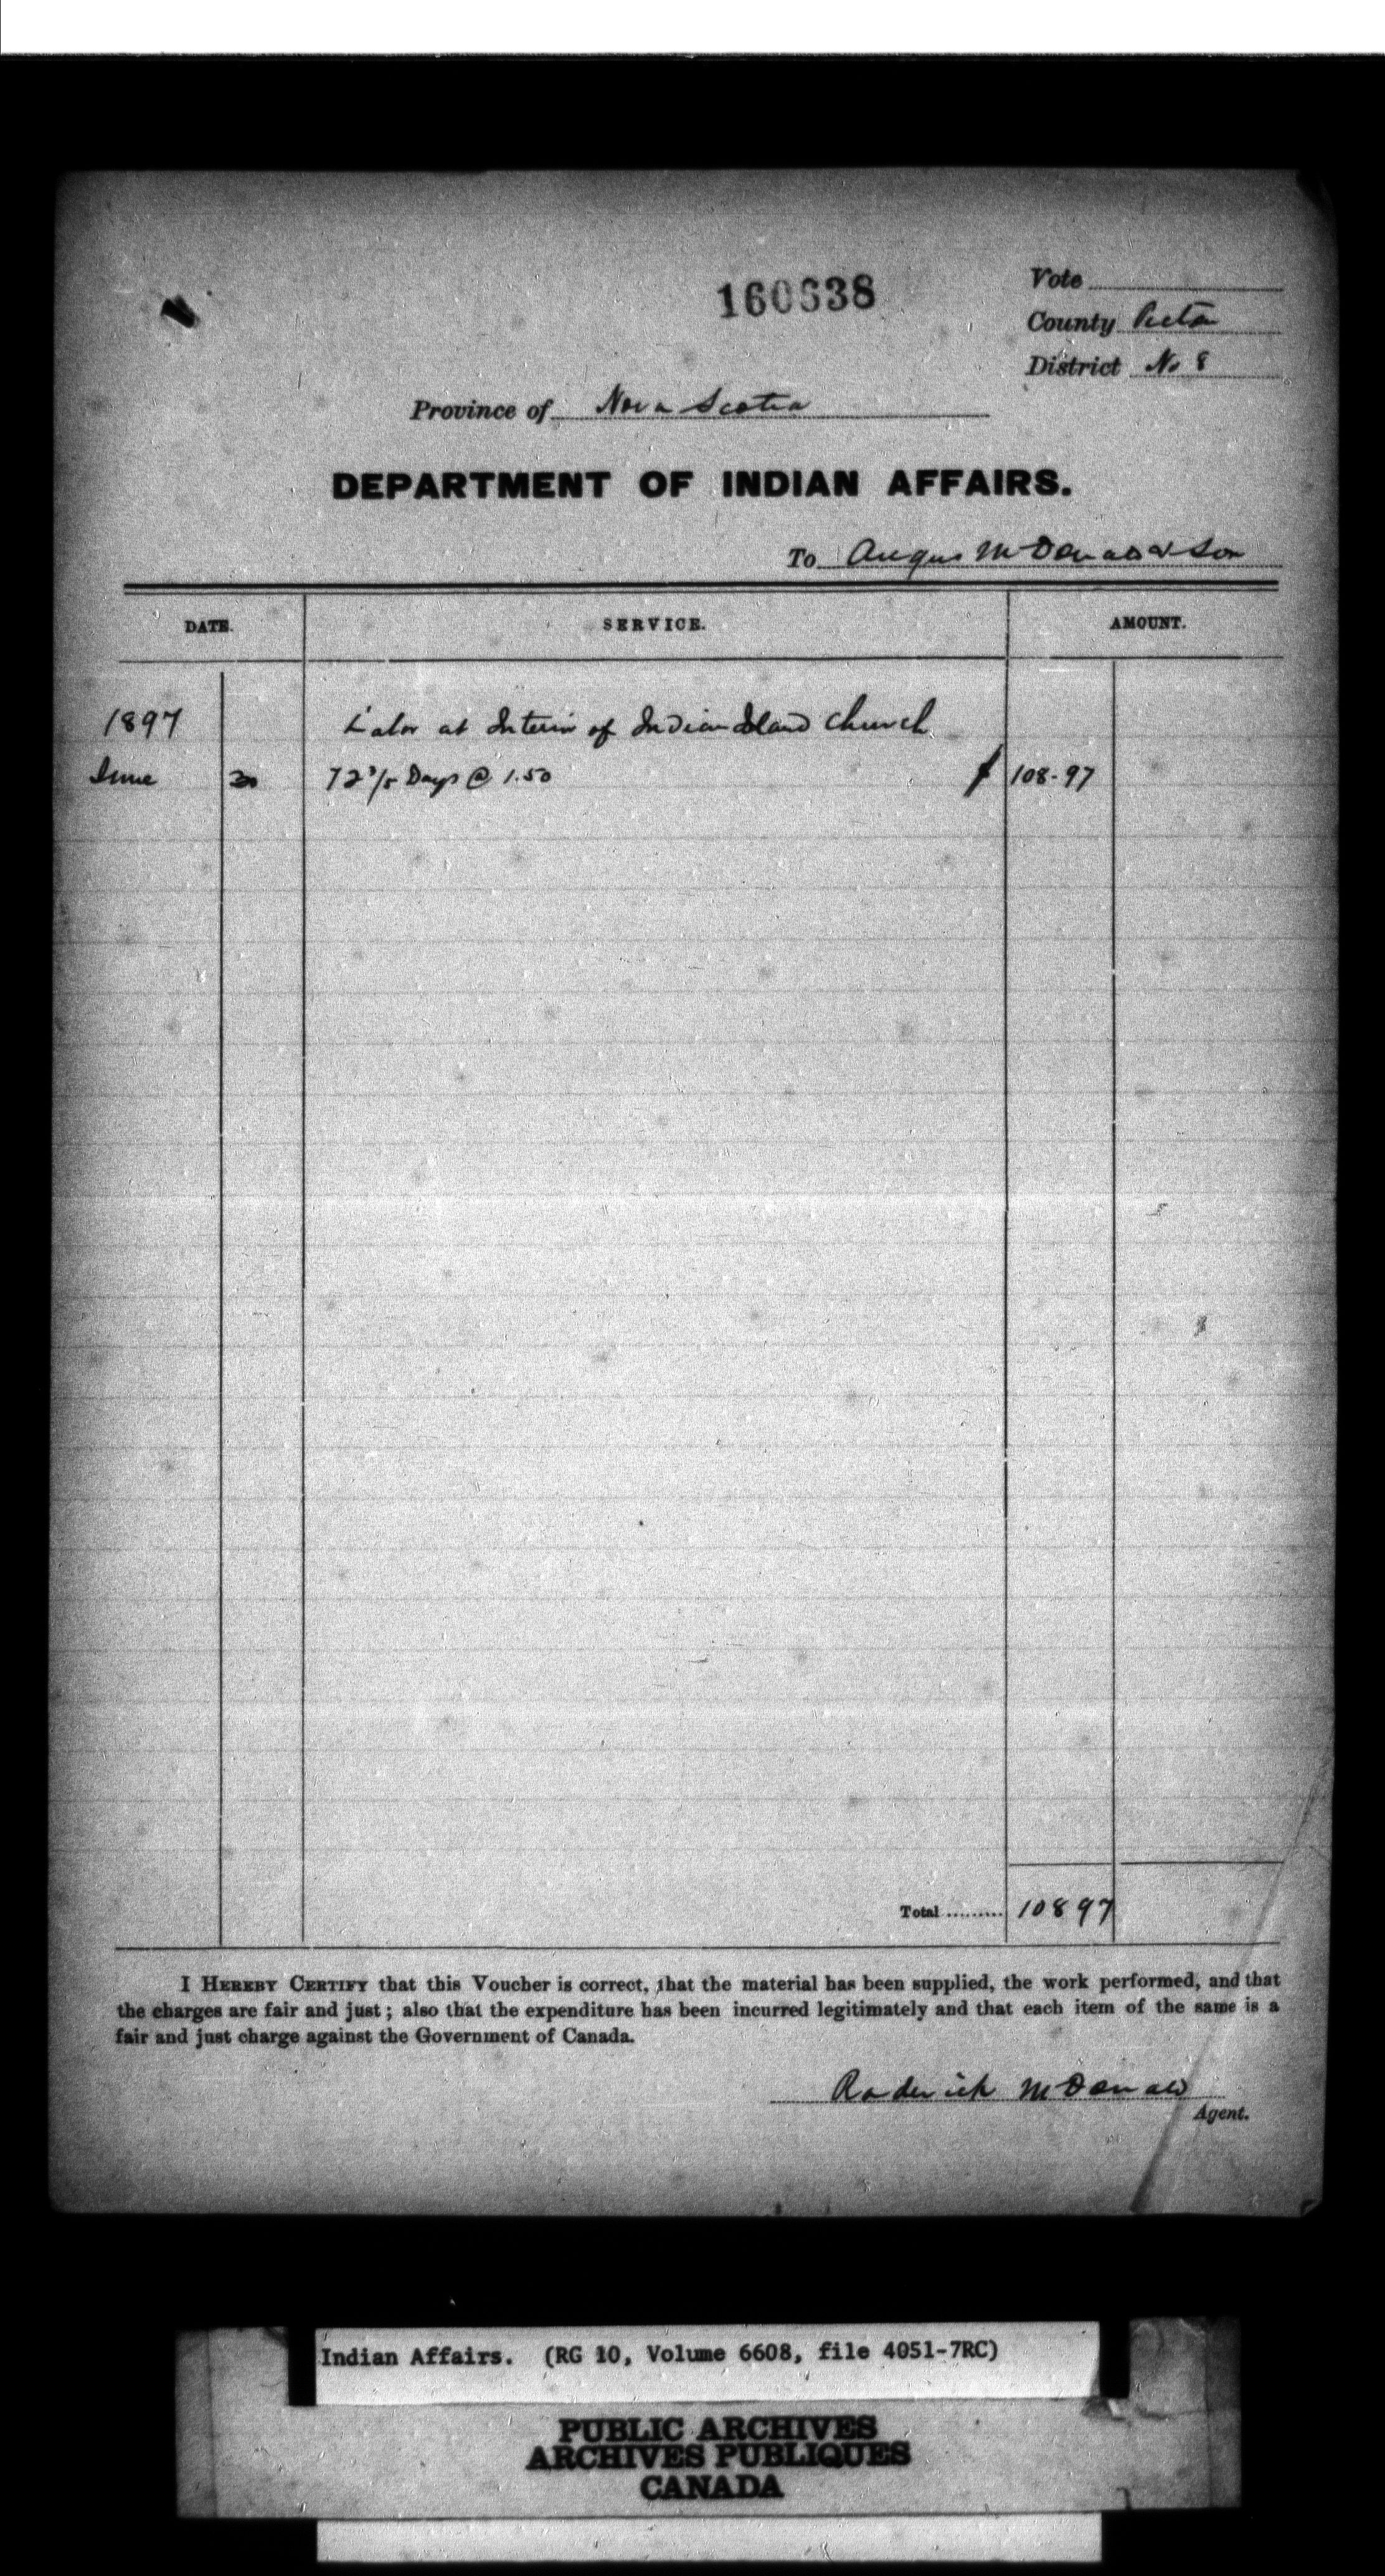 160638
Vote
County Pictou
District No 8
Province of Nova Scotia
DEPARTMENT OF INDIAN AFFAIRS.
To Angus McDonald & Son
DATE. SERVICE. AMOUNT.
1897 Labor at Interior of Indian Island Church
June 30 72 3/5 Days @ 1.50 $ 108-97
Total ......... 108 97
I HEREBY CERTIFY that this Voucher is correct, that the material has been supplied, the work performed, and that
the charges are fair and just; also that the expenditure has been incurred legitimately and that each item of the same is a
fair and just charge against the Government of Canada.
Roderick McDonald
Agent.
Indian Affairs. (RG 10, Volume 6608, file 4051-7RC)
PUBLIC ARCHIVES
ARCHIVES PUBLIQUES
CANADA